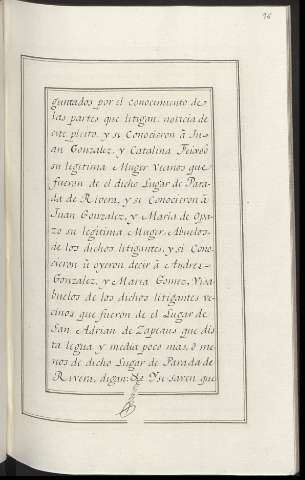 76
guntados por el conocimiento de
las partes que litigan, noticia de
este pleito, y si Conocieron â Ju-
an Gonzalez, y Catalina Feixoô
su legitima Muger Vecinos que
fueron de el dicho Lugar de Para-
da de Rivera, y si Conocieron â
Juan Gonzalez, y Maria de Opa-
zo su legitima Muger, Abuelos
de los dichos litigantes, y si Cono-
cieron û oyeron decir â Andres
Gonzalez, y Maria Gomez, Visa-
buelos de los dichos litigantes ve-
cinos que fueron de el Lugar de
San Adrian de Zapeaus que dis-
ta legua y media poco mas, ô me-
nos de dicho Lugar de Parada de
Rivera, digan: Ysi saven que